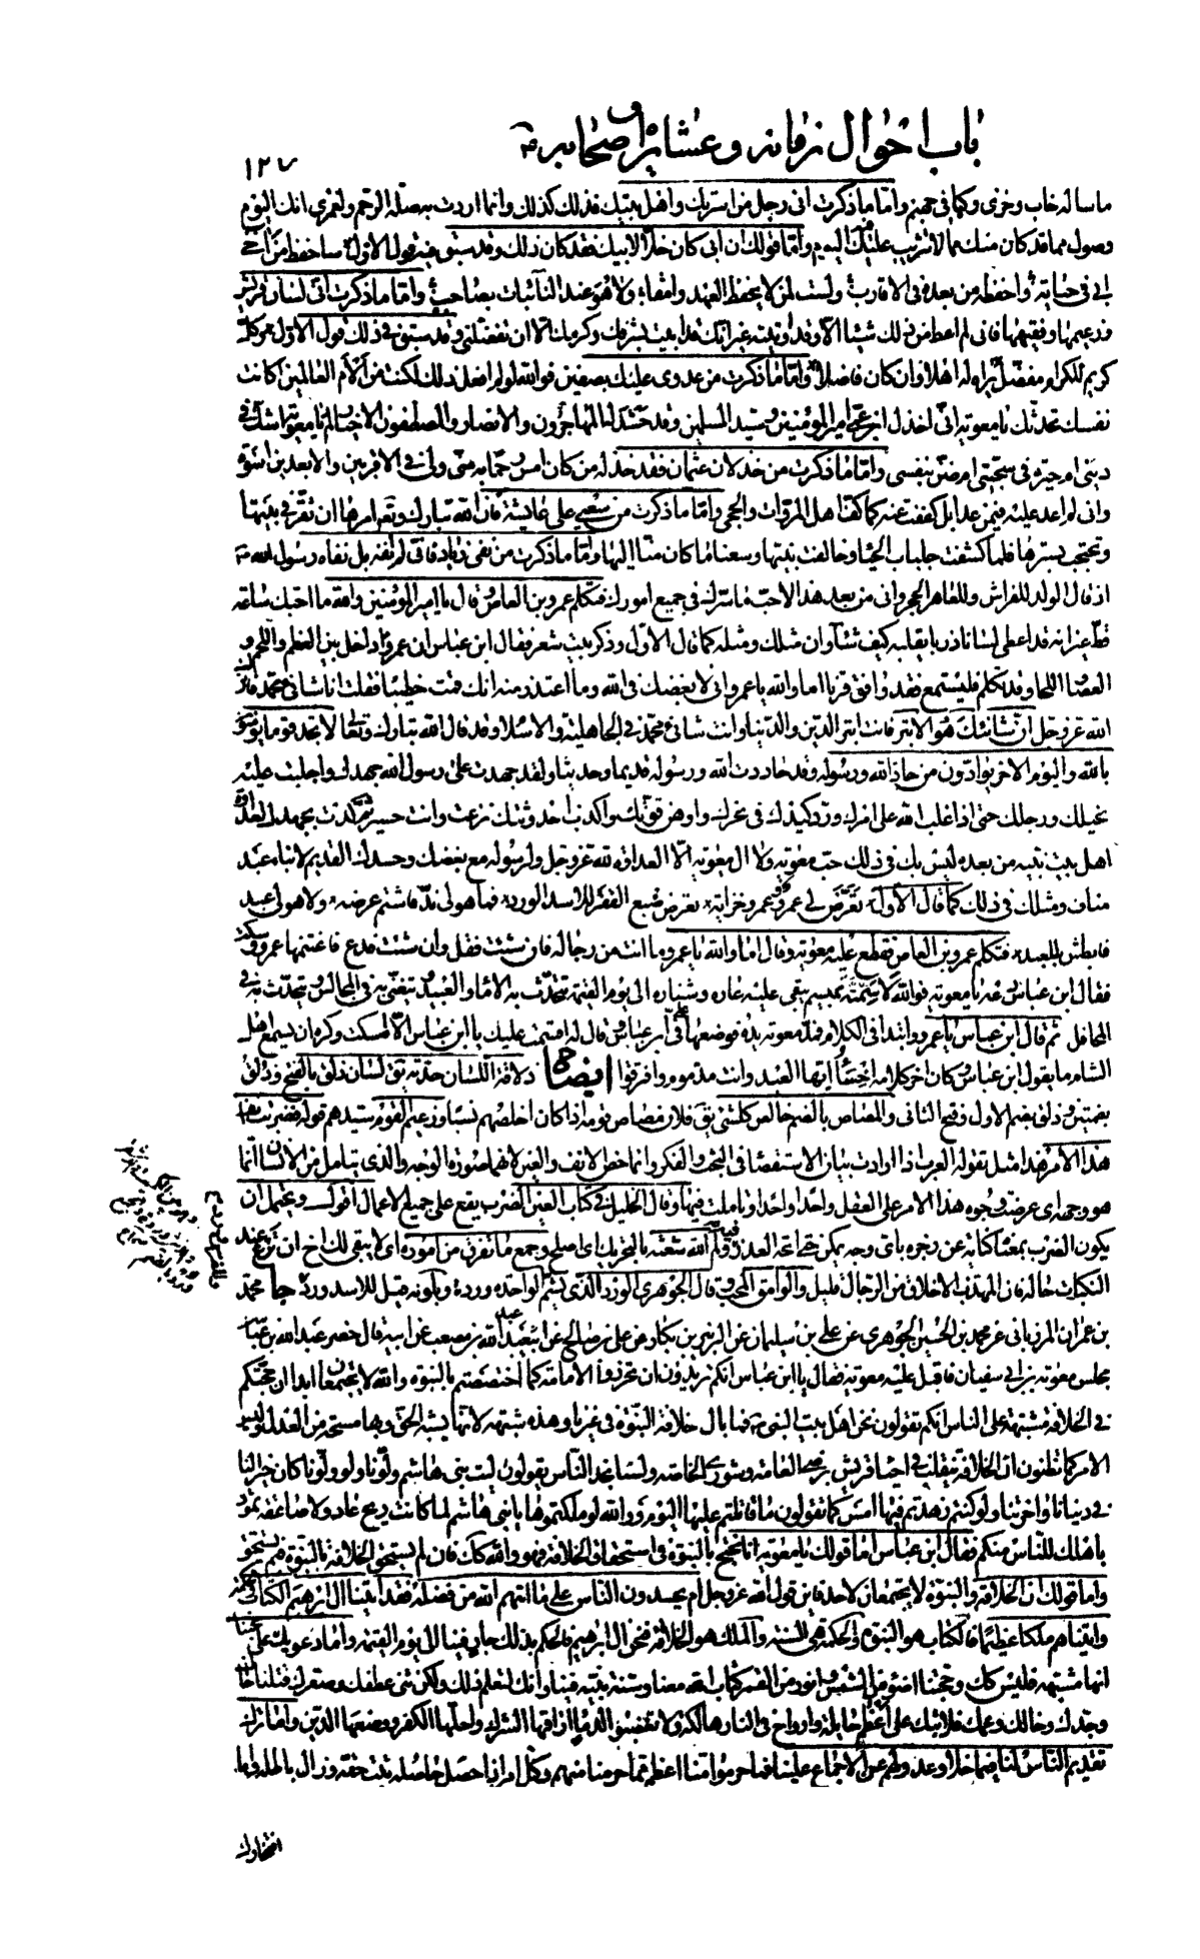 باب احوال زمانه وعشايره واصحابه
١٢٧
ما ساله خاب وخزى وكبا فى واما ما ذكرت انى رجل من اسرتك واهل بيتك فذلك كذلك وانما اردت به صلة الرحم ولعمرى انك اليوم
وصول مما قد كان منك مما لا تثريب عليك فيه اليوم واما قولك ان ابى كان خلا لابيك فقد كان ذلك وقد سبق فيه قول الاول ساحفظ من آخى
ابى فى حياته واحفظه من بعده فى الاقارب ولست لمن لا يحفظ العهد وامقا ولا هو عند النائبات بصاحبى واما ما ذكرت انى لسان قريش
وزعيمها وفقيهها فانى لم اعط من ذلك شيئا الا وقد اوتيته غير انك قد ابيت بشرفك وكرمك الا ان تفضلنى وقد سبق فى ذلك قول الاول وكل
كريم للكرام مفضل يراه له اهلا وان كان فاضلا واما ما ذكرت من عدوى عليك بصفين فوالله لو لم افعل ذلك لكنت من ألأم العالمين اكانت
نفسك تحدثك يا معوية انى اخذل ابن عمى امير المؤمنين وسيد المسلمين وقد حشد له المهاجرون والانصار والمصطفون الاخيار لم يا معوية اشك فى
دينى ام حيرة فى سجيتى ام ضن بنفسى واما ما ذكرت من خذلان عثمان فقد خذله من كان امس رحما به منى ولى فى الاقربين والابعدين اسوة
وانى لم اعد عليه فيمن عدا بل كففت عنه كما كف اهل المروات والحجى واما ما ذكرت من سعيى على عايشة فان الله تبارك وتعالى امرها ان تقر فى بيتها
وتحتجب بسترها فلما كشفت جلباب الحيا وخالفت نبيها وسعنا ما كان منا اليها واما ما ذكرت من نفى زياد فانى لم انفه بل نفاه رسول الله ص
اذ قال الولد للفراش وللعاهر الحجر وانى من بعد هذا لاحب ما سرك فى جميع امورك فتكلم عمرو بن العاص فقال يا امير المؤمنين والله ما احبك ساعة
قط غير انه قد اعطى لسانا ذربا يقلبه كيف شاء وان مثلك ومثله كما قال الاول وذكر بيت شعر فقال ابن عباس ان عمروا داخل بين العظم واللحم و
العصا واللحا وقد تكلم فليستمع فقد وافق قرنا اما والله يا عمرو انى لابغضك فى الله وما اعتذر منه انك قمت خطيبا فقلت انا شانئ محمد فانزل
الله عز وجل ان شانئك هو الابتر فانت ابتر الدين والدنيا وانت شانئ محمد فى الجاهلية والاسلام وقد قال الله تبارك وتعالى لا تجد قوما يؤمنون
بالله واليوم الاخر يوادون من حاد الله ورسوله وقد حاددت الله ورسوله قديما وحديثا ولقد جهدت على رسول الله جهدك واجلبت عليه
بخيلك ورجلك حتى اذا غلب الله على امرك ورد كيدك فى نحرك واوهن قوتك واكذب احدوثتك نزعت وانت حسير ثم كدت بجهدك لعداوة
اهل بيت نبيه من بعده ليس بك فى ذلك حب معوية ولا ال معوية الا العداوة لله عز وجل ولرسوله مع بغضك وحسدك القديم لابناء عبد
مناف ومثلك فى ذلك كما قال الاول تعرض لى عمرو وعمرو خزاية تعرض ضبع القفر للاسد الورد فما هو لى ند فاشتم عرضه ولا هو لى عبد
فابطش بالعبد فتكلم عمرو بن العاص فقطع عليه معوية وقال اما والله يا عمرو ما انت من رجاله فان شئت فقل وان شئت فدع فاغتنمها عمرو وسكت
فقال ابن عباس دعه يا معوية فوالله لاسمنه بميسم يبقى عليه عاره وشناره الى يوم القيمة تتحدث به الاماء والعبيد ويتغنى به فى المجالس ويتحدث به فى
المحافل ثم قال ابن عباس يا عمرو وابتدا فى الكلام فمد معوية يده فوضعها على فى ابن عباس وقال له اقسمت عليك يا ابن عباس الا امسكت وكره ان يسمع اهل
الشام ما يقول ابن عباس وكان اخر كلامه اخسأ ايها العبد وانت مذموم وافترقوا ايضاح ذلاقة اللسان حدته يق لسان ذلق بالفتح وذلق
بضمتين وذلق بضم الاول وفتح الثانى والمصاص بالضم خالص كل شئ يق فلان مصاص قومه اذا كان اخلصهم نسبا وزعيم القوم سيدهم قوله فضربت
هذا الامر هذا مثل تقوله العرب اذا ارادت بيان الاستقصا فى البحث والفكر وانما خص الانف والعين لانهما صورة الوجه والذى يتامل من الانسان انما
هو وجهه اى عرضت وجوه هذا الامر على العقل واحدا واحدا وتاملت فيها وقال الخليل فى كتاب العين الضرب يقع على جميع الاعمال اقول ويحتمل ان
يكون الضرب بمعناه كناية عن زجره باى وجه يمكن ولم الله شعثه بالتحريك اى اصلح وجمع ما تفرق من اموره اى لا يبقى لك اخ ان تركت عند
النكبات حاله فان المهذب الاخلاق من الرجال قليل والوامق المحب وقال الجوهرى الورد الذى يشم الواحدة وردة وبلونه قيل للاسد ورد جا محمد
بن عمران المرزبانى عن محمد بن الحسين الجوهرى عن على بن سليمان عن الزبير بن بكار عن على بن صالح عن عبد الله بن مصعب عن ابيه قال حضر عبد الله بن عباس
مجلس معوية بن ابى سفيان فاقبل عليه معوية فقال يا ابن عباس انكم تريدون ان تحرزوا الامامة كما اختصصتم بالنبوة والله لا يجتمعان ابدا ان حجتكم
فى الخلافة مشتبهة على الناس انكم تقولون نحن اهل بيت النبى ص فما بال خلافة النبوة فى غيرنا وهذه شبهة لانها يشبه الحق وبها مسحة من العدل وليس
الامر كما تظنون ان الخلافة ينقلب فى احياء قريش برضى العامة وشورى الخاصة ولسنا نجد الناس يقولون ليت بنى هاشم ولونا ولو ولونا كان خيرا لنا
فى دنيانا واخرتنا ولو كنتم زهدتم فيها امس كما تقولون ما قاتلتم عليها اليوم ووالله لو ملكتموها يا بنى هاشم لما كانت ريح عاد ولا صاعقة ثمود
باهلك للناس منكم فقال ابن عباس اما قولك يا معوية انا نحتج بالنبوة فى استحقاق الخلافة فهو والله كك فان لم يستحق الخلافة بالنبوة فبم يستحق
واما قولك ان الخلافة والنبوة لا يجتمعان لاحد فاين قول الله عز وجل ام يحسدون الناس على ما اتيهم الله من فضله فقد اتينا ال ابرهيم الكتاب والحكمة
واتيناهم ملكا عظيما فالكتاب هو النبوة والحكمة هى السنة والملك هو الخلافة فنحن ال ابرهيم فالحكم بذلك جار فينا الى يوم القيمة واما دعويك على حجتنا
انها مشتبهة فليس كك وحجتنا اضوء من الشمس وانور من القمر كتاب الله معنا وسنة نبيه فينا وانك لتعلم ذلك ولكن ثنى عطفك وصعرك قتلنا اخاك
وجدك وخالك وعمك فلا تبك على اعظم حايلة وارواح فى النار هالكة ولا تغضبوا لدماء اراقها الشرك واحلها الكفر ووضعها الدين واما ترك
تقديم الناس لنا فيما خلا وعدولهم عن الاجماع علينا فما حرموا منا اعظم مما حرمنا منهم وكل امر اذا حصل حاصله ثبت حقه وزال باطله واما
افتخارك